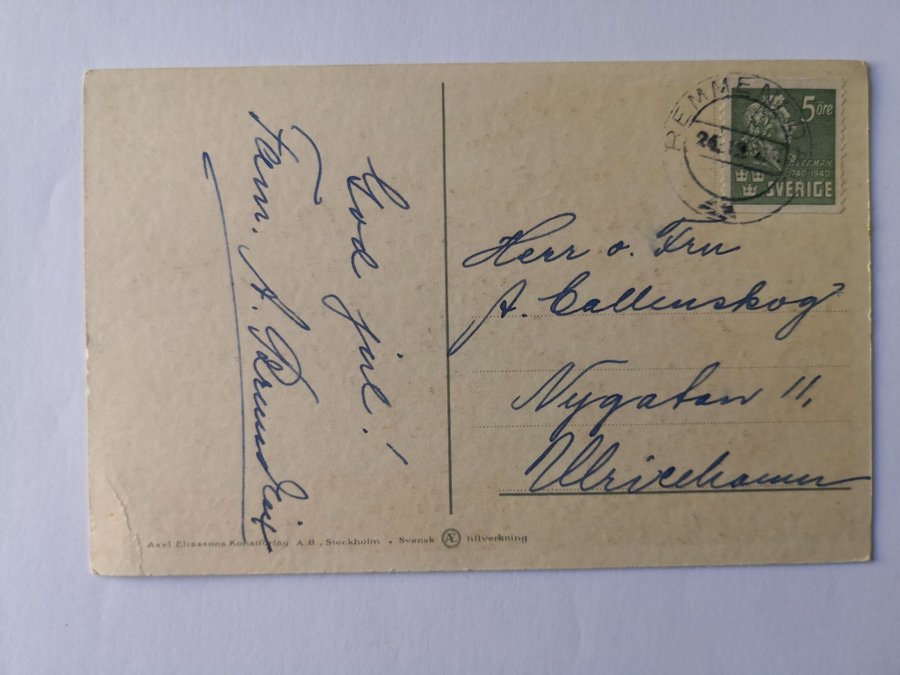 God jul!
Fam. A.
5 öre
BELLMAN
1740-1940
SVERIGE
Herr o. Fru
A. Callenskog
Nygatan 11,
Ulricehamn
Axel Eliassons Konstförlag A.B., Stockholm • Svensk Æ tillverkning